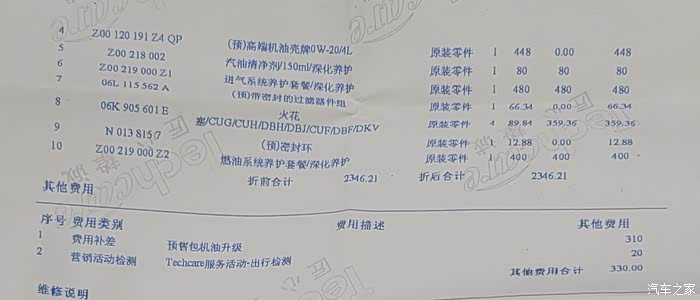 4 Z00 120 191 Z4 QP (预)高端机油壳牌0W-20/4L 原装零件 1 448 0.00 448
5 Z00 218 002 汽油清净剂/150ml/深化养护 原装零件 1 80 80 80
6 Z00 219 000 Z1 进气系统养护套餐/深化养护 原装零件 1 480 480 480
7 06L 115 562 A (预)带密封的过滤器件组 原装零件 1 66.34 0.00 66.34
8 06K 905 601 E 火花
塞/CUG/CUH/DBH/DBJ/CUF/DBF/DKV 原装零件 4 89.84 359.36 359.36
9 N 013 815 7 (预)密封环 原装零件 1 12.88 0.00 12.88
10 Z00 219 000 Z2 燃油系统养护套餐/深化养护 原装零件 1 400 400 400
折前合计 2346.21 折后合计 2346.21
其他费用
序号 费用类别 费用描述 其他费用
1 费用补差 预售包机油升级 310
2 营销活动检测 Techcare服务活动-出行检测 20
其他费用合计 330.00
维修说明
汽车之家